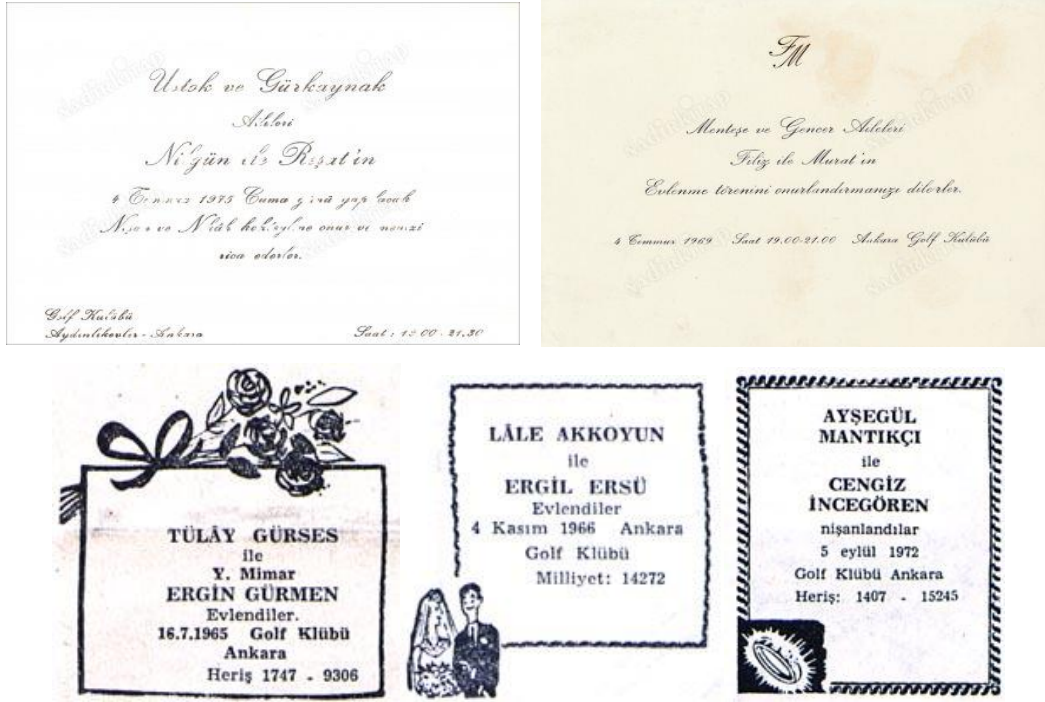 Ustok ve Gürkaynak
Aileleri
Nilgün ile Reşat'in
4 Temmuz 1975 Cuma günü yapılacak
Nişan ve Nikâh kokteyline onur vermenizi
rica ederler.
Golf Kulübü
Aydınlıkevler - Ankara
Saat : 19.00 - 21.30
FM
Menteşe ve Gencer Aileleri
Filiz ile Murat'ın
Evlenme törenini onurlandırmanızı dilerler.
4 Temmuz 1969 Saat 19.00-21.00 Ankara Golf Kulübü
TÜLÂY GÜRSES
ile
Y. Mimar
ERGİN GÜRMEN
Evlendiler.
16.7.1965 Golf Klübü
Ankara
Heriş 1747 - 9306
LÂLE AKKOYUN
ile
ERGİL ERSÜ
Evlendiler
4 Kasım 1966 Ankara
Golf Klübü
Milliyet: 14272
AYŞEGÜL
MANTIKÇI
ile
CENGİZ
İNCEGÖREN
nişanlandılar
5 eylül 1972
Golf Klübü Ankara
Heriş: 1407 - 15245